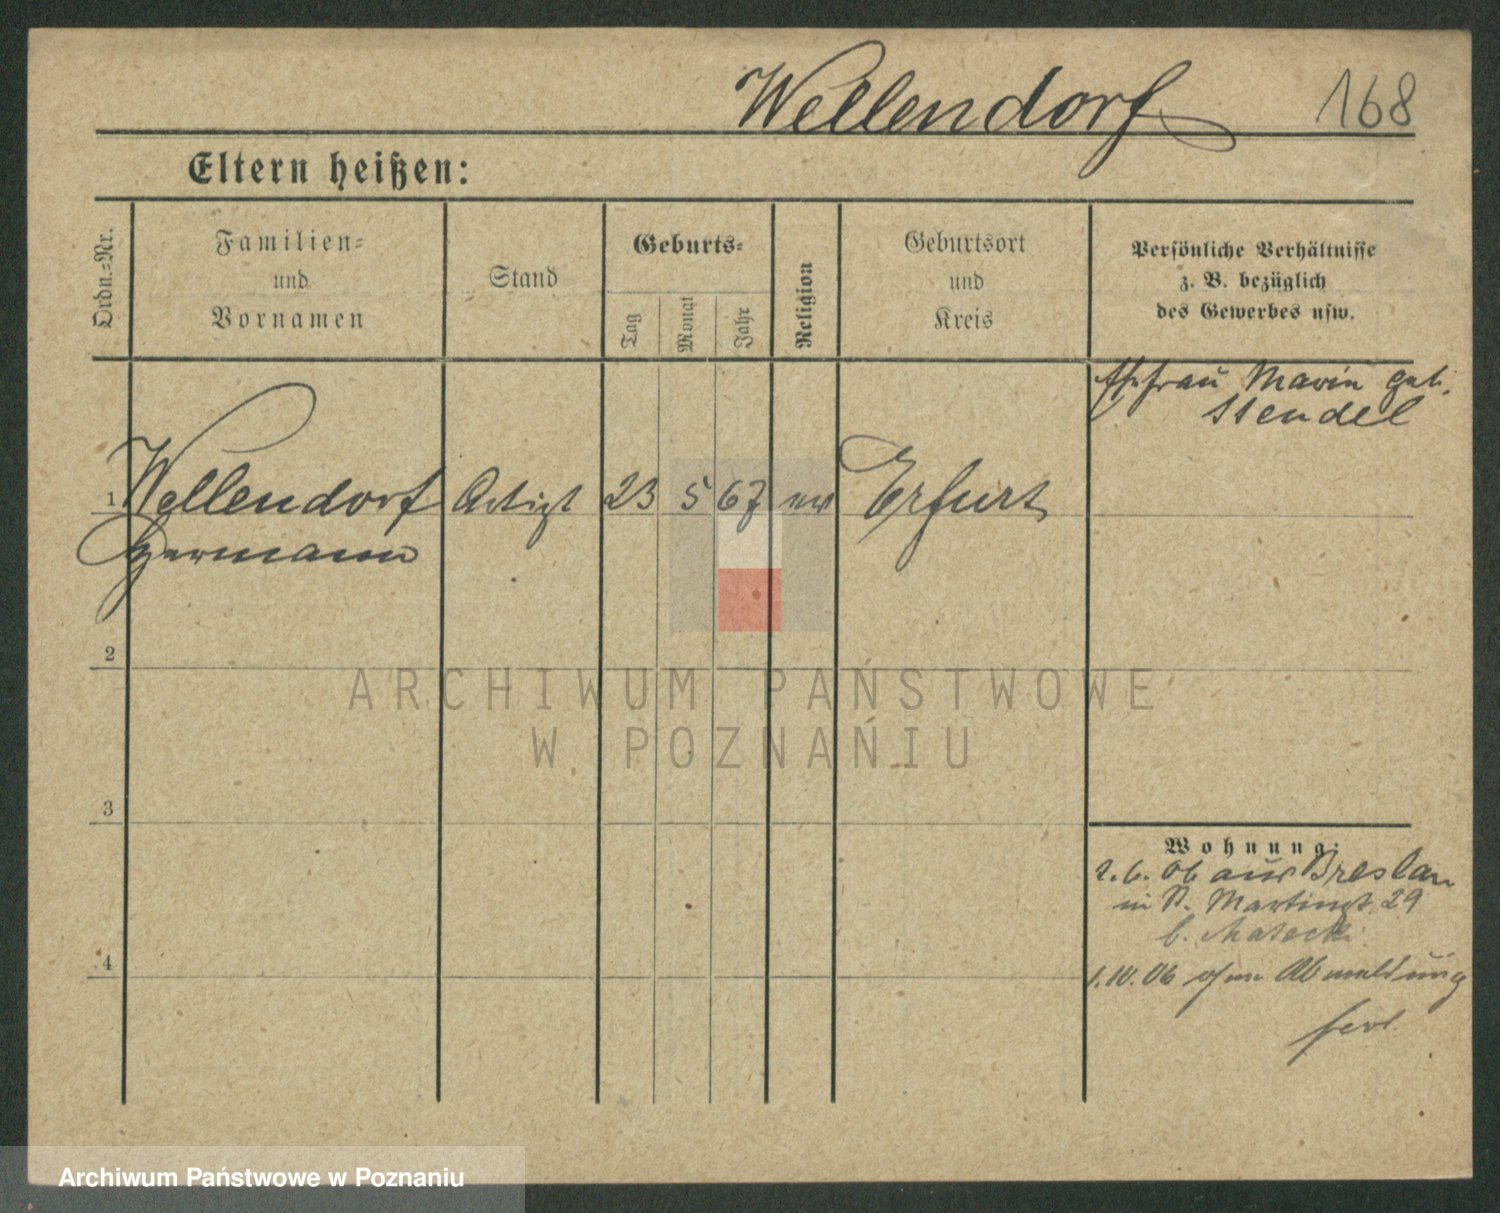 Wellendorf 168
Eltern heißen:
Ordn.=Nr.
Familien=
und
Vornamen
Stand
Geburts=
Tag
Monat
Jahr
Religion
Geburtsort
und
Kreis
Persönliche Verhältnisse
z. B. bezüglich
des Gewerbes usw.
Ehefrau Marie geb.
Stendel
1 Wellendorf Artist 23 5 67 ev Erfurt
Hermann
2
3
4
Wohnung:
2.6.06 aus Breslau
in St. Martinst. 29
b. Matecki
1.10.06 ohne Abmeldung
fort
ARCHIWUM PAŃSTWOWE
W POZNANIU
Archiwum Państwowe w Poznaniu